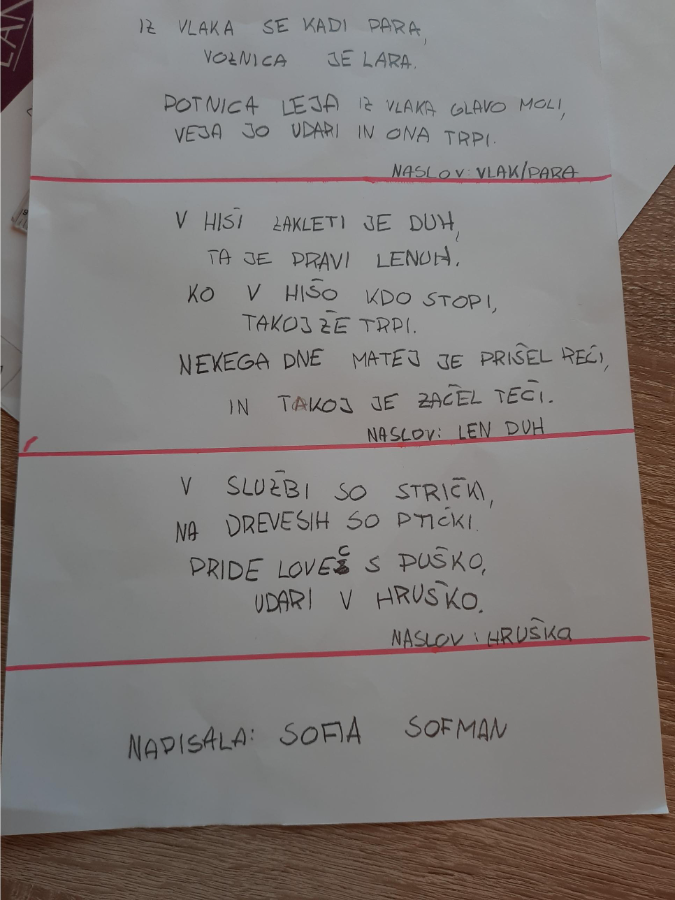 IZ VLAKA SE KADI PARA,
VOZNICA JE LARA.
POTNICA LEJA IZ VLAKA GLAVO MOLI,
VEJA JO UDARI IN ONA TRPI.
NASLOV: VLAK/PARA
V HIŠI ZAKLETI JE DUH,
TA JE PRAVI LENUH.
KO V HIŠO KDO STOPI,
TAKOJ ŽE TRPI.
NEKEGA DNE MATEJ JE PRIŠEL REČI,
IN TAKOJ JE ZAČEL TEČI.
NASLOV: LEN DUH
V SLUŽBI SO STRIČKI,
NA DREVESIH SO PTIČKI.
PRIDE LOVEC S PUŠKO,
UDARI V HRUŠKO.
NASLOV: HRUŠKA
NAPISALA: SOFIA SOFMAN